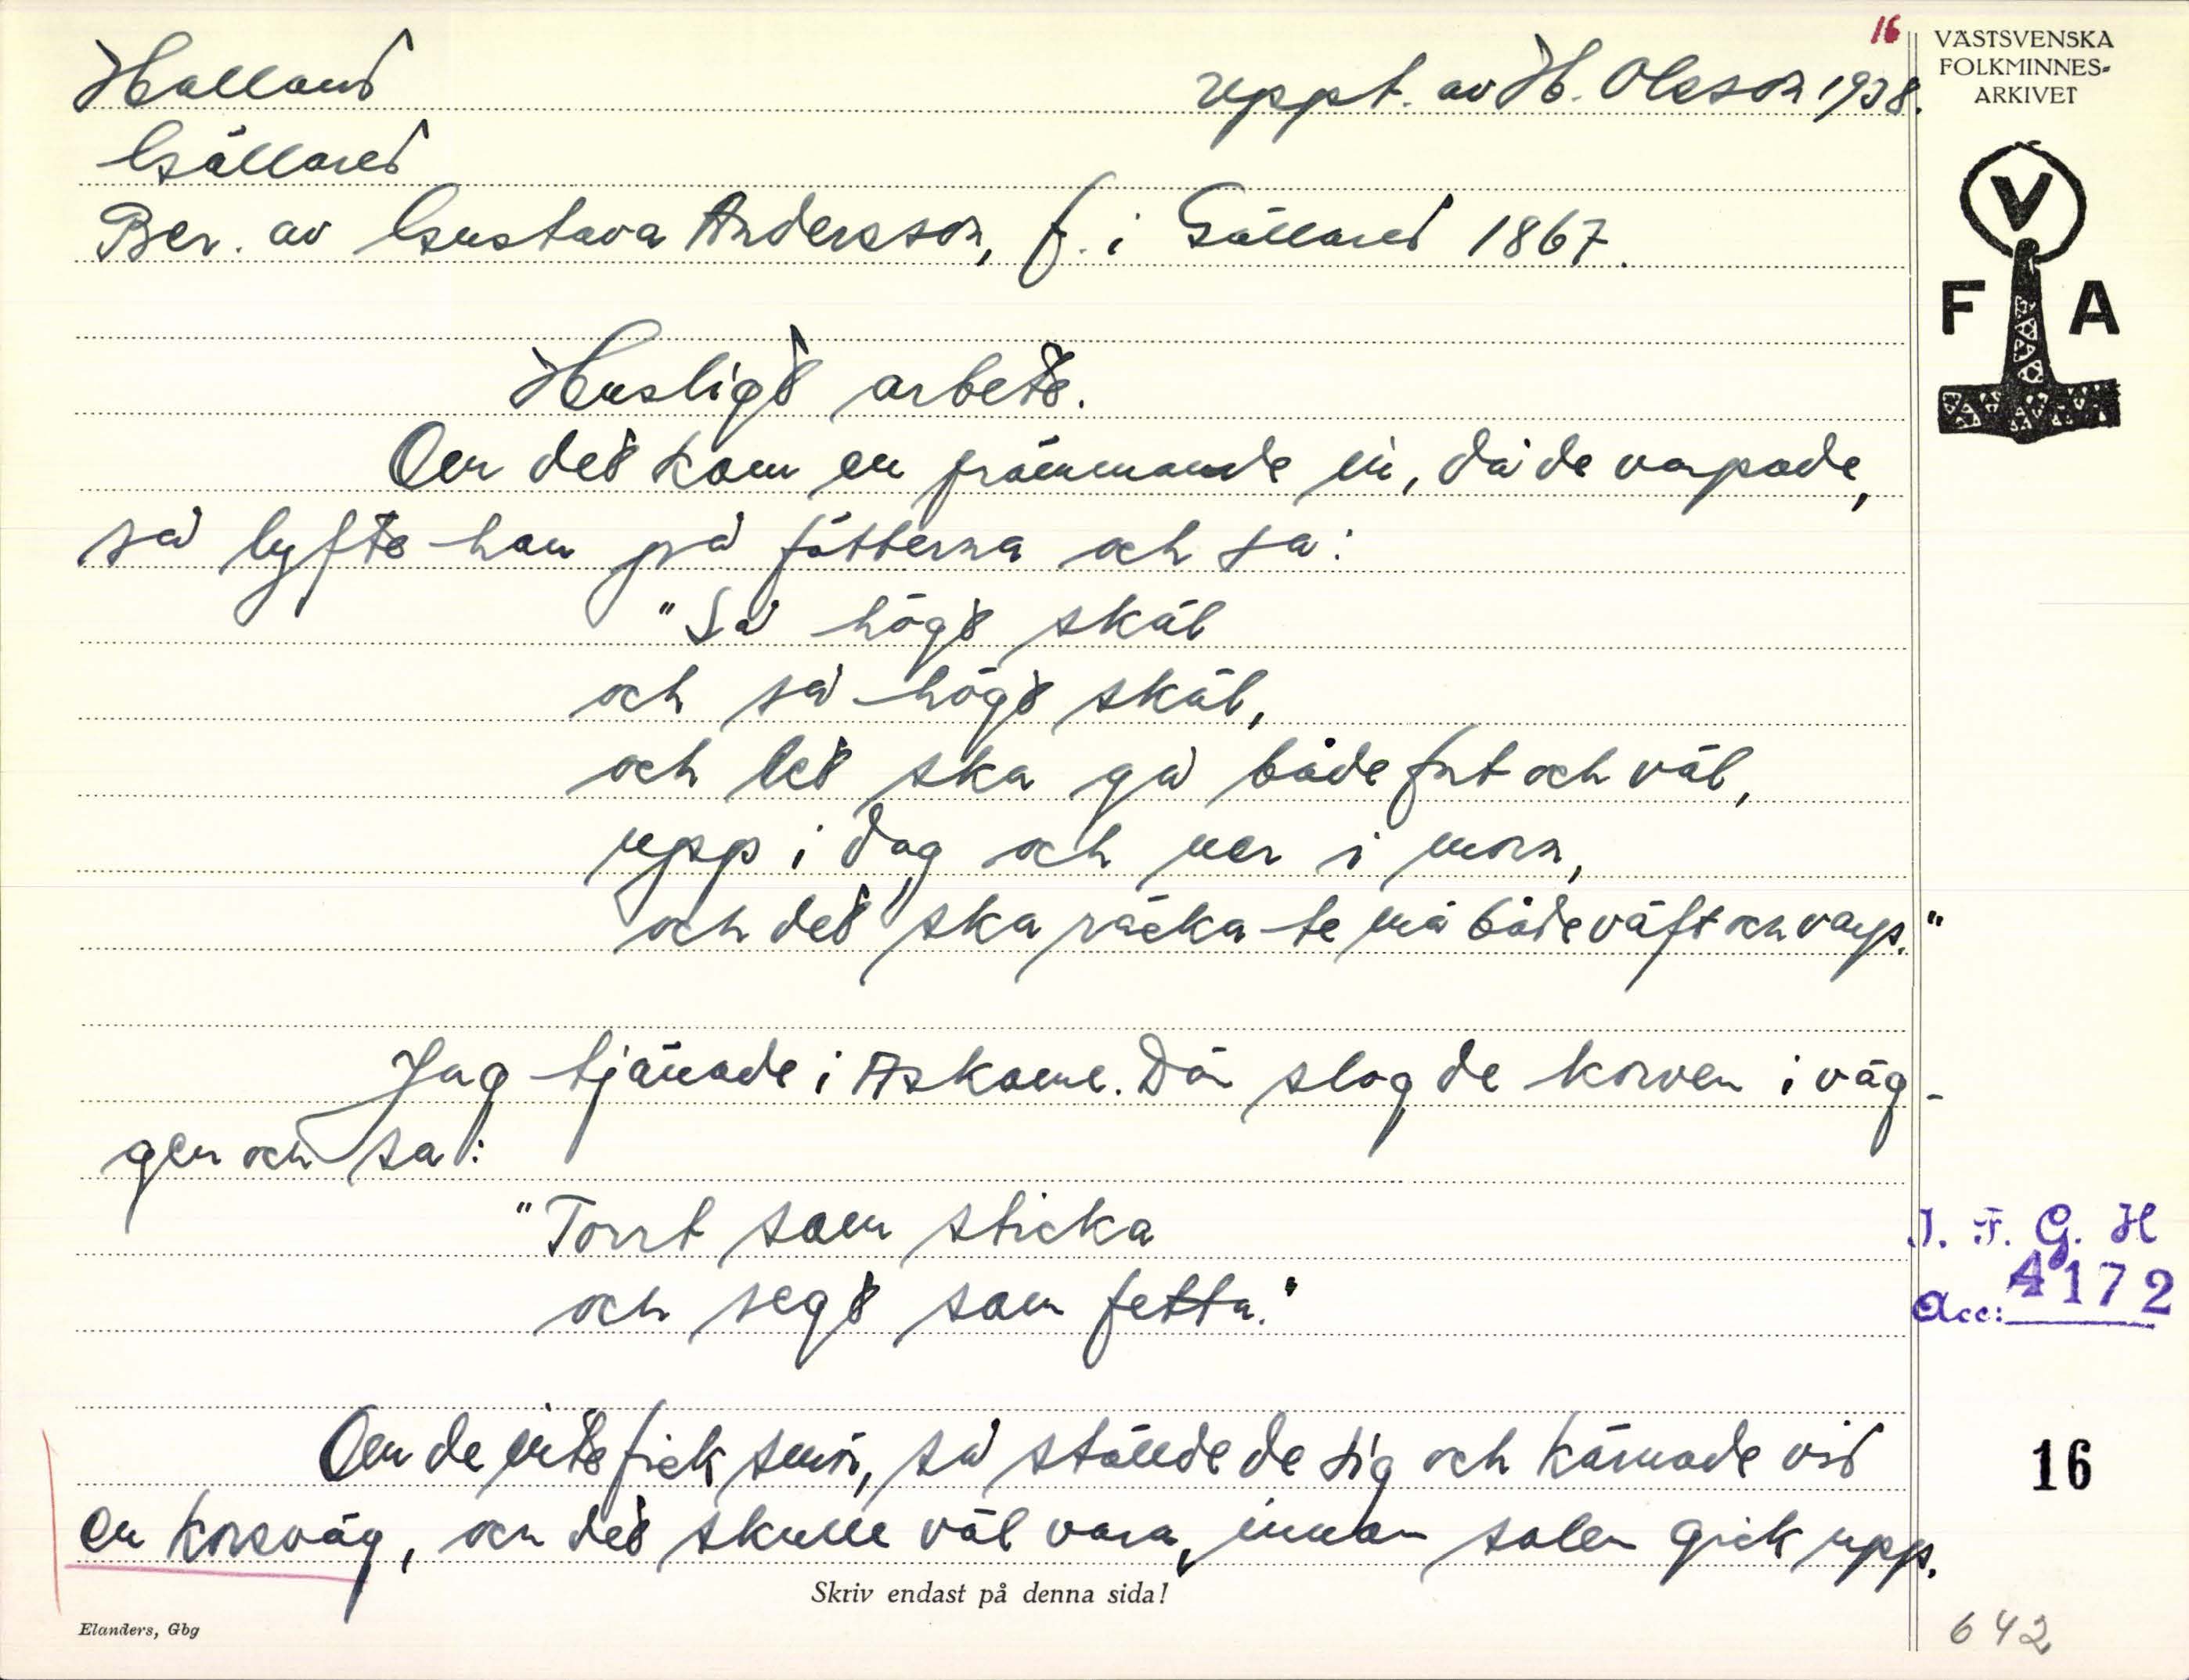 16
VÄSTSVENSKA
FOLKMINNES-
ARKIVET
Halland
uppt. av H. Olsson 1938.
Gällared
Ber. av Gustava Andersson, f. i Gällared 1867.
V
F A
Husligt arbete.
Om det kom en främmande in, då de varpade,
så lyfte han på fötterna och sa:
"Så högt skäl
och så högt skäl,
och let ska gå både fort och väl,
upp i dag och ner i morn,
och det ska räcka te må både väft och varp."
Jag tjänade i Askome. Där slog de korven i väg-
gen och sa:
"Torrt som sticka
och segt som fetta."
J. F. G. H
Acc: 4172
Om de inte fick smör, så ställde de sig och kärnade vid
en korsväg, och det skulle väl vara, innan solen gick upp.
16
Skriv endast på denna sida!
Elanders, Gbg
642